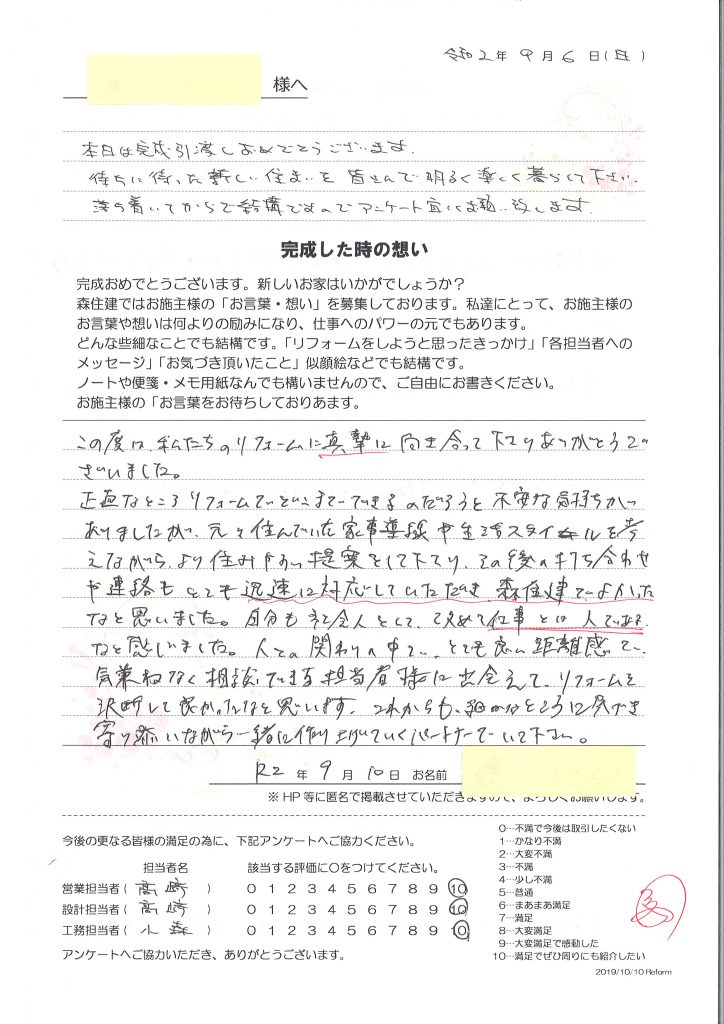 令和2年9月6日(日)
様へ
本日は完成引渡しおめでとうございます。
待ちに待った新しい住まいを皆さんで明るく楽しく暮らして下さい。
落ち着いてからで結構ですのでアンケート宜しくお願い致します。
完成した時の想い
完成おめでとうございます。新しいお家はいかがでしょうか?
森住建ではお施主様の「お言葉・想い」を募集しております。私達にとって、お施主様の
お言葉や想いは何よりの励みになり、仕事へのパワーの元でもあります。
どんな些細なことでも結構です。「リフォームをしようと思ったきっかけ」「各担当者への
メッセージ」「お気づき頂いたこと」似顔絵などでも結構です。
ノートや便箋・メモ用紙なんでも構いませんので、ご自由にお書きください。
お施主様の「お言葉をお待ちしておりあます。
この度は、私たちのリフォームに真摯に向き合って下さりありがとうご
ざいました。
正直なところリフォームでどこまでできるのだろうと不安な気持ちが
ありましたが、元々住んでいた家事導線や生活スタイルを考
えながら、より住みやすい提案をして下さり、その後の打ち合わせ
や連絡もとても迅速に対応していただき、森住建でよかった
なと思いました。自分も社会人として、改めて仕事とは人であるな
なと感じました。人との関わりの中で、とても良い距離感で、
気兼ねなく相談できる担当者様に出会えて、リフォームを
決断して良かったなと思います。これからも、細かなところに気づき
寄り添いながら一緒に作り上げていくパートナーでいて下さい。
R2年9月10日 お名前
※HP等に匿名で掲載させていただきますので、よろしくお願いします。
今後の更なる皆様の満足の為に、下記アンケートへご協力ください。
担当者名 該当する評価に○をつけてください。
営業担当者(高崎) 0 1 2 3 4 5 6 7 8 9 10
設計担当者(高崎) 0 1 2 3 4 5 6 7 8 9 10
工務担当者(小森) 0 1 2 3 4 5 6 7 8 9 10
アンケートへご協力いただき、ありがとうございます。
0…不満で今後は取引したくない
1…かなり不満
2…大変不満
3…不満
4…少し不満
5…普通
6…まあまあ満足
7…満足
8…大変満足
9…大変満足で感動した
10…満足でぜひ周りにも紹介したい
2019/10/10 Reform